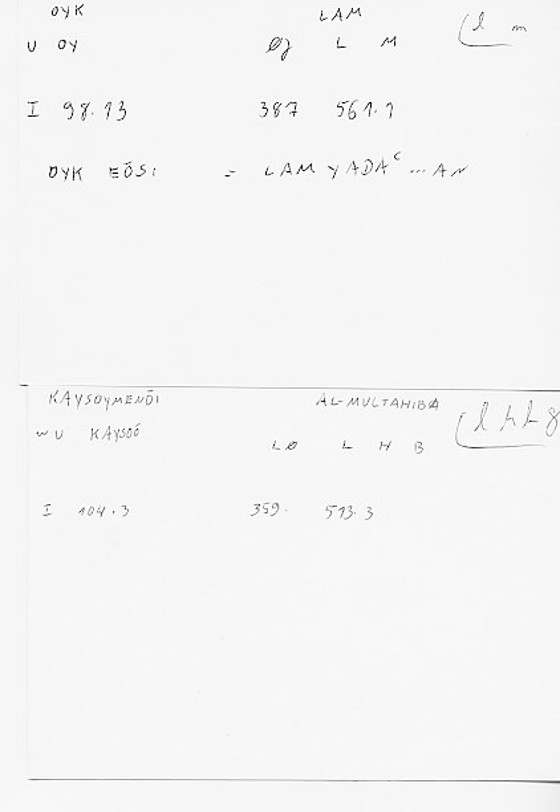 OYK LAM
U OY Øg L M (l m
I 98.13 387 561.1
OYK EŌSI = LAM YADAᶜ ... AN
KAYSOYMENŌI AL-MULTAHIBA
w U KAYSOŌ LØ L H B
I 104.3 359. 513.3